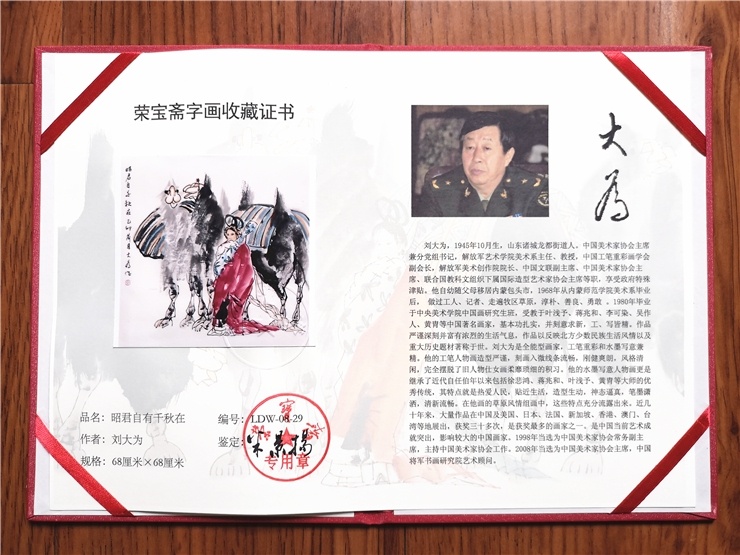 荣宝斋字画收藏证书
品名：昭君自有千秋在
作者：刘大为
规格：68厘米×68厘米
编号：LDW-08-29
鉴定：
专用章
大为
刘大为，1945年10月生，山东诸城龙都街道人。中国美术家协会主席
兼分党组书记，解放军艺术学院美术系主任、教授，中国工笔重彩画学会
副会长，解放军美术创作院院长、中国文联副主席、中国美术家协会主
席、联合国教科文组织下属国际造型艺术家协会主席等职，享受政府特殊
津贴。他自幼随父母移居内蒙包头市，1968年从内蒙师范学院美术系毕业
后，做过工人、记者、走遍牧区草原，淳朴、善良、勇敢。1980年毕业
于中央美术学院中国画研究生班。受教于叶浅予、蒋兆和、李可染、吴作
人、黄胄等中国著名画家，基本功扎实，并刻意求新，工、写皆精。作品
严谨深刻并富有浓烈的生活气息，作品以反映北方少数民族生活风情以及
重大历史题材著称于世。刘大为是全能型画家，工笔重彩和水墨写意兼
精。他的工笔人物画造型严谨，刻画入微线条流畅，刚健爽朗，风格清
闲，完全摆脱了旧人物仕女画柔靡琐细的积习，他的水墨写意人物画更是
继承了近代自任伯年以来包括徐悲鸿、蒋兆和、叶浅予、黄胄等大师的优
秀传统，其特点就是热爱人民，贴近生活，造型生动，神态逼真，笔墨潇
洒，清新流畅。在他画的草原风情组画中，这些特点充分流露出来。近几
十年来，大量作品在中国及美国、日本、法国、新加坡、香港、澳门、台
湾等地展出，获奖三十多次，是获奖最多的画家之一。是中国当前艺术成
就突出，影响较大的中国画家。1998年当选为中国美术家协会常务副主
席，主持中国美术家协会工作。2008年当选为中国美术家协会主席，中国
将军书画研究院艺术顾问。